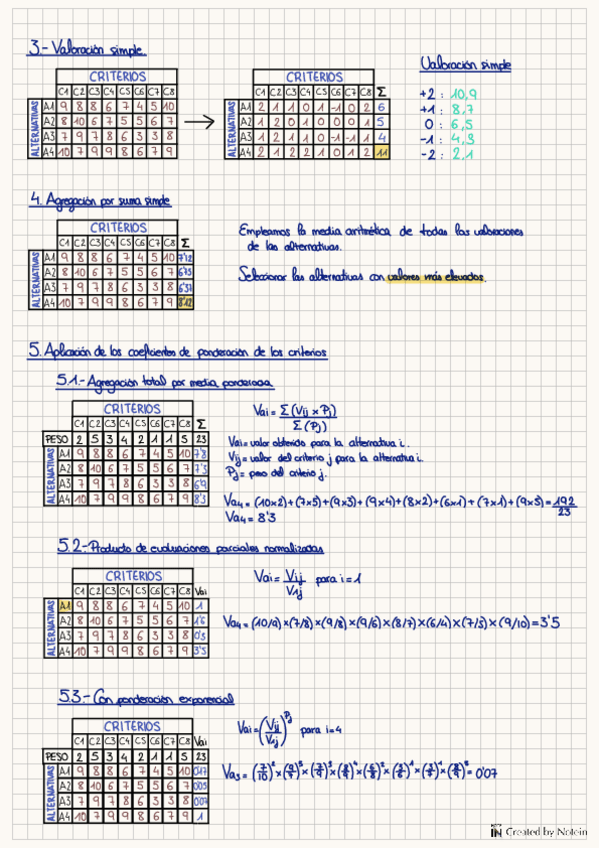 3.- Valoración simple.
CRITERIOS
C1 C2 C3 C4 C5 C6 C7 C8
ALTERNATIVAS
A1 9 8 8 6 7 4 5 10
A2 8 10 6 7 5 5 6 7
A3 7 9 7 8 6 3 3 8
A4 10 7 9 9 8 6 7 9
CRITERIOS
C1 C2 C3 C4 C5 C6 C7 C8 Σ
ALTERNATIVAS
A1 2 1 1 0 1 -1 0 2 6
A2 1 2 0 1 0 0 0 1 5
A3 1 2 1 1 0 -1 -1 1 4
A4 2 1 2 2 1 0 1 2 11
Valoración simple
+2 : 10,9
+1 : 8,7
0 : 6,5
-1 : 4,3
-2 : 2,1
4. Agregación por suma simple
CRITERIOS
C1 C2 C3 C4 C5 C6 C7 C8 Σ
ALTERNATIVAS
A1 9 8 8 6 7 4 5 10 7'12
A2 8 10 6 7 5 5 6 7 6'75
A3 7 9 7 8 6 3 3 8 6'37
A4 10 7 9 9 8 6 7 9 8'12
Empleamos la media aritmética de todas las valoraciones
de las alternativas.
Seleccionar las alternativas con valores más elevados.
5. Aplicación de los coeficientes de ponderación de los criterios
5.1.- Agregación total por media ponderada
CRITERIOS
C1 C2 C3 C4 C5 C6 C7 C8 Σ
PESO 2 5 3 4 2 1 1 5 23
ALTERNATIVAS
A1 9 8 8 6 7 4 5 10 7'8
A2 8 10 6 7 5 5 6 7 7'3
A3 7 9 7 8 6 3 3 8 6'9
A4 10 7 9 9 8 6 7 9 8'3
Vai = Σ(Vij x Pj) / Σ(Pj)
Vai = valor obtenido para la alternativa i.
Vij = valor del criterio j para la alternativa i.
Pj = peso del criterio j.
Va4 = (10x2)+(7x5)+(9x3)+(9x4)+(8x2)+(6x1)+(7x1)+(9x5) = 192/23
Va4 = 8'3
5.2.- Producto de evaluaciones parciales normalizadas
CRITERIOS
C1 C2 C3 C4 C5 C6 C7 C8 Vai
ALTERNATIVAS
A1 9 8 8 6 7 4 5 10 1
A2 8 10 6 7 5 5 6 7 1'6
A3 7 9 7 8 6 3 3 8
A4 10 7 9 9 8 6 7 9 3'5
Vai = Vij / V1j para i=1
Va4 = (10/9)x(7/8)x(9/8)x(9/6)x(8/7)x(6/4)x(7/5)x(9/10) = 3'5
5.3.- Con ponderación exponencial
CRITERIOS
C1 C2 C3 C4 C5 C6 C7 C8 Vai
PESO 2 5 3 4 2 1 1 5 23
ALTERNATIVAS
A1 9 8 8 6 7 4 5 10
A2 8 10 6 7 5 5 6 7
A3 7 9 7 8 6 3 3 8 0'07
A4 10 7 9 9 8 6 7 9 1
Vai = (Vij / V1j)^Pj para i=4
Created by Notein